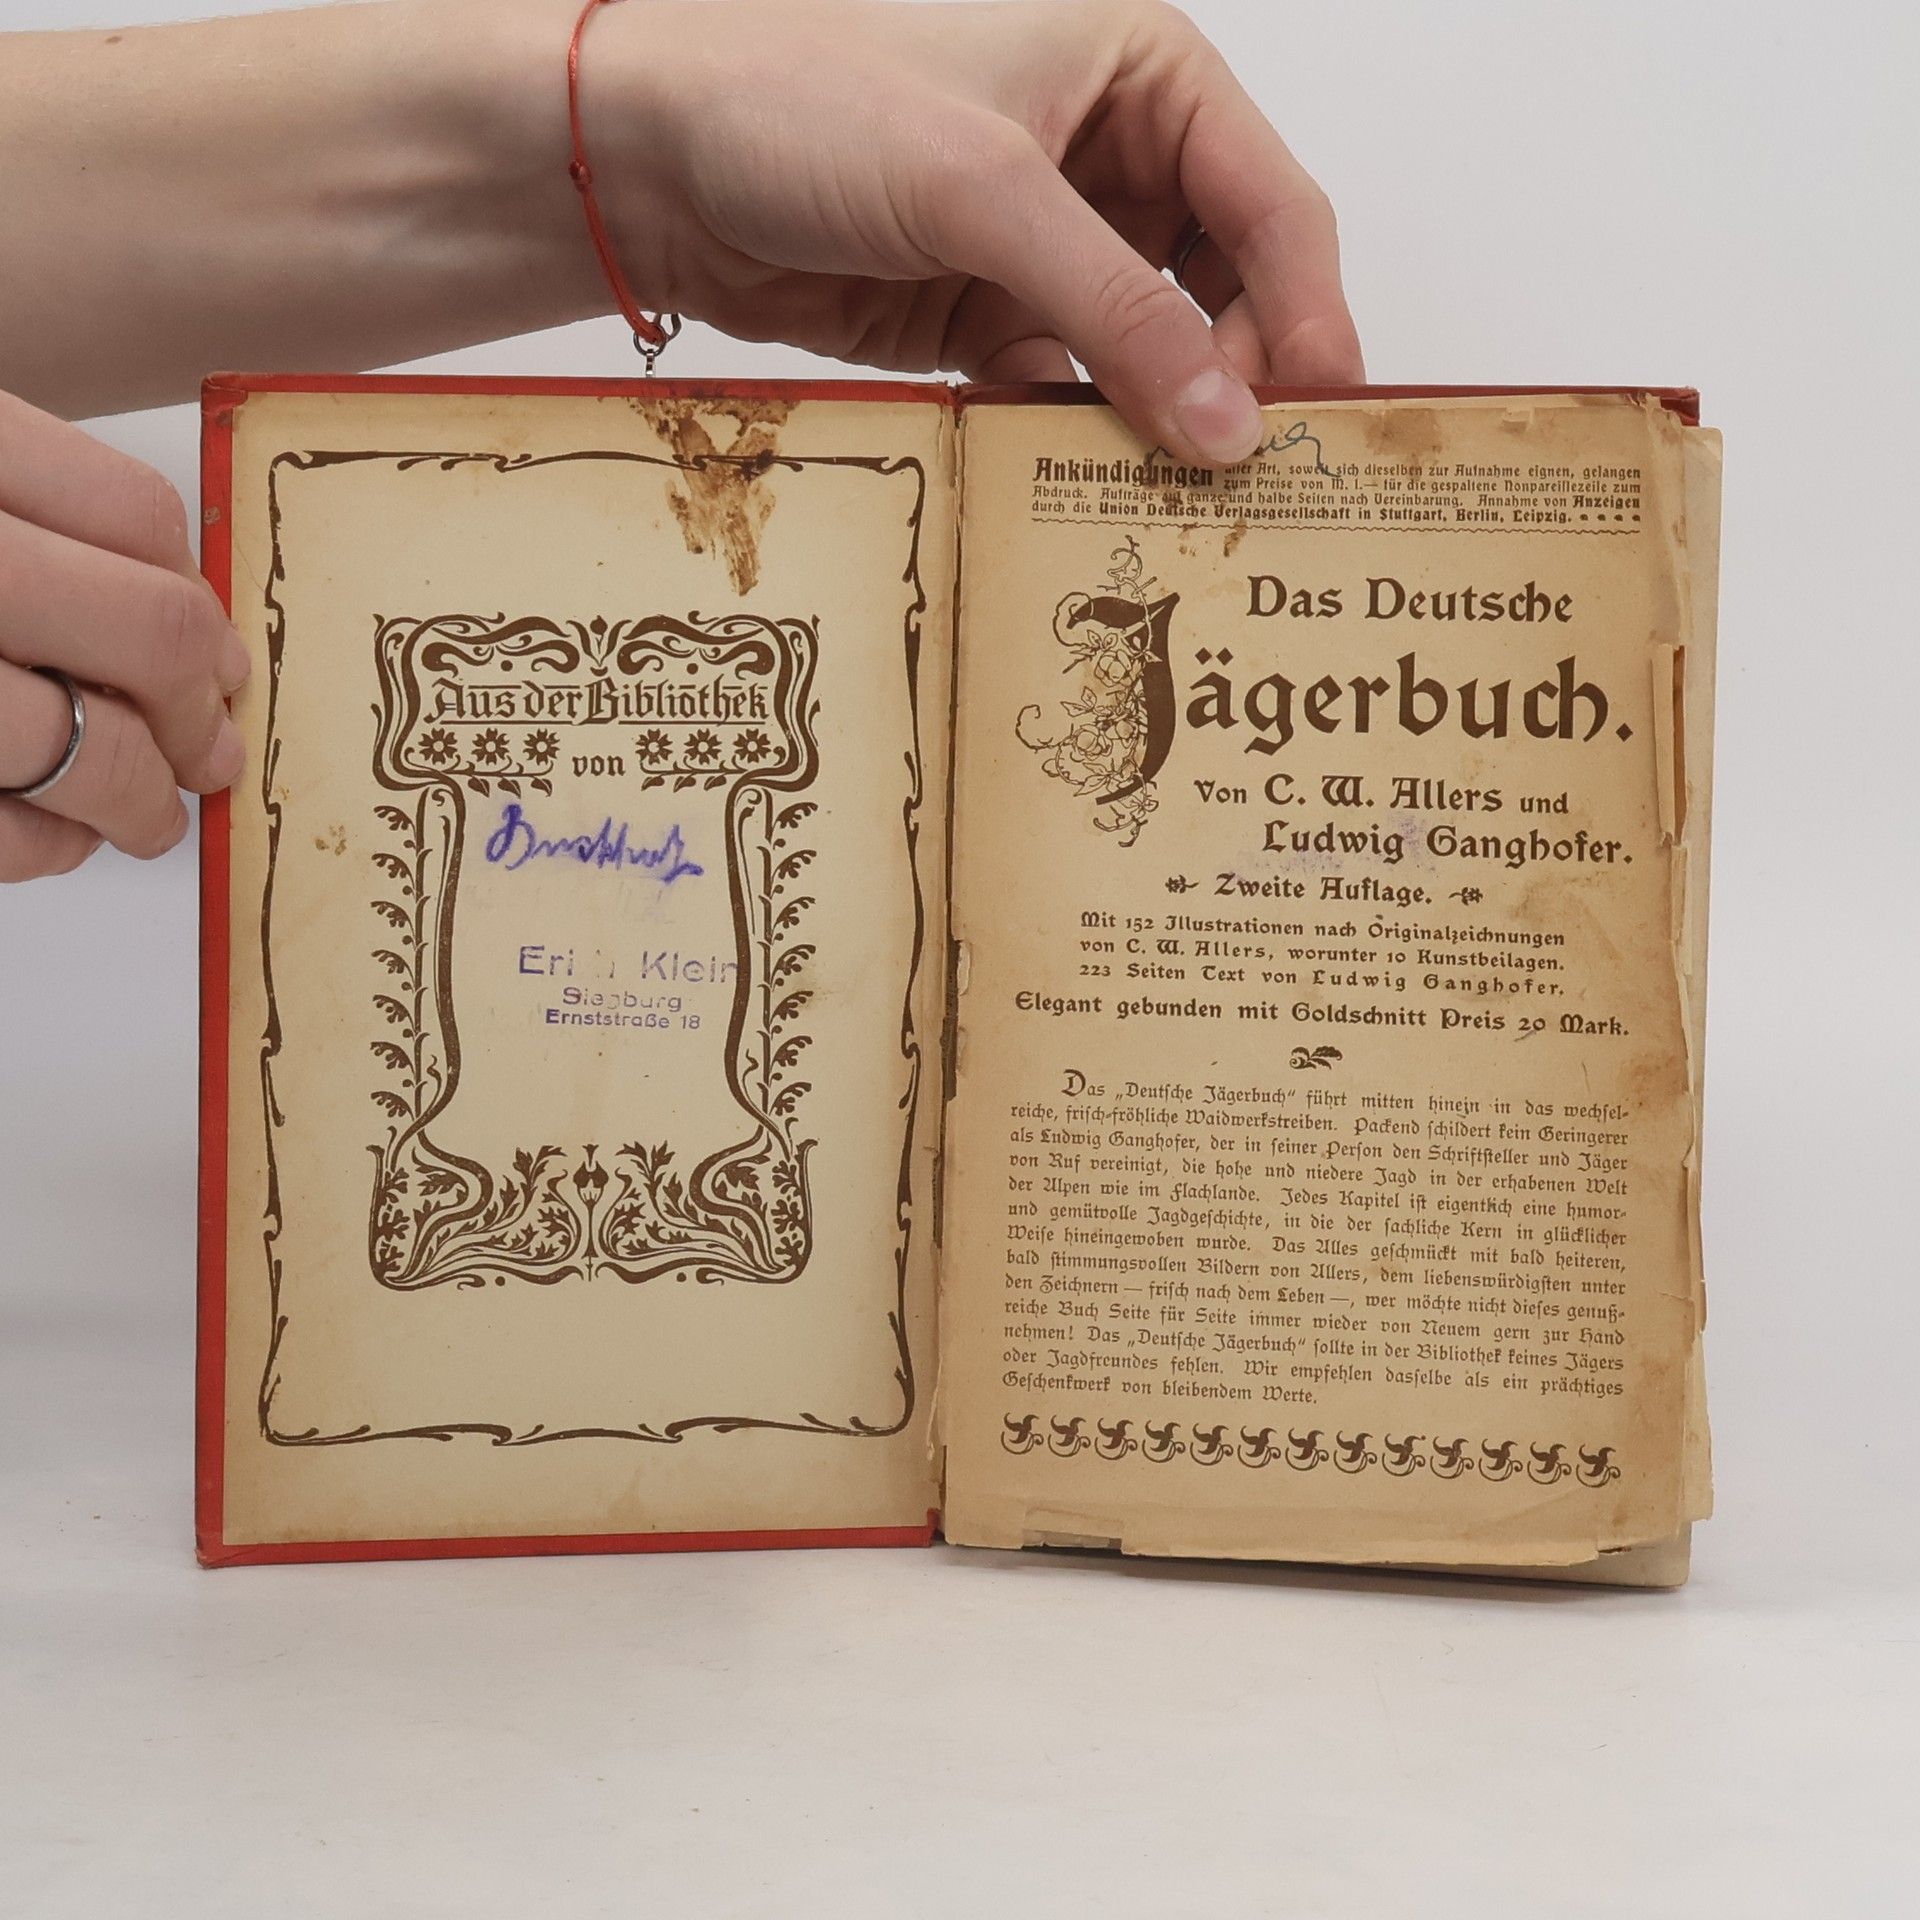 Aus der Bibliothek
von
Klein
Siegburg
Ernststraße 18
Ankündigungen aller Art, soweit sich dieselben zur Aufnahme eignen, gelangen
zum Preise von M. 1.— für die gespaltene Nonpareillezeile zum
Abdruck. Aufträge auf ganze und halbe Seiten nach Vereinbarung. Annahme von Anzeigen
durch die Union Deutsche Verlagsgesellschaft in Stuttgart, Berlin, Leipzig.
Das Deutsche
Jägerbuch.
Von C. W. Allers und
Ludwig Ganghofer.
Zweite Auflage.
Mit 152 Illustrationen nach Originalzeichnungen
von C. W. Allers, worunter 10 Kunstbeilagen.
223 Seiten Text von Ludwig Ganghofer.
Elegant gebunden mit Goldschnitt Preis 20 Mark.
Das „Deutſche Jägerbuch“ führt mitten hinein in das wechſel-
reiche, friſch-fröhliche Waidwerkstreiben. Packend ſchildert kein Geringerer
als Ludwig Ganghofer, der in ſeiner Perſon den Schriftſteller und Jäger
von Ruf vereinigt, die hohe und niedere Jagd in der erhabenen Welt
der Alpen wie im Flachlande. Jedes Kapitel iſt eigentlich eine humor-
und gemütvolle Jagdgeſchichte, in die der ſachliche Kern in glücklicher
Weiſe hineingewoben wurde. Das Alles geſchmückt mit bald heiteren,
bald ſtimmungsvollen Bildern von Allers, dem liebenswürdigſten unter
den Zeichnern — friſch nach dem Leben —, wer möchte nicht dieſes genuß-
reiche Buch Seite für Seite immer wieder von Neuem gern zur Hand
nehmen! Das „Deutſche Jägerbuch“ ſollte in der Bibliothek keines Jägers
oder Jagdfreundes fehlen. Wir empfehlen dasſelbe als ein prächtiges
Geſchenkwerk von bleibendem Werte.